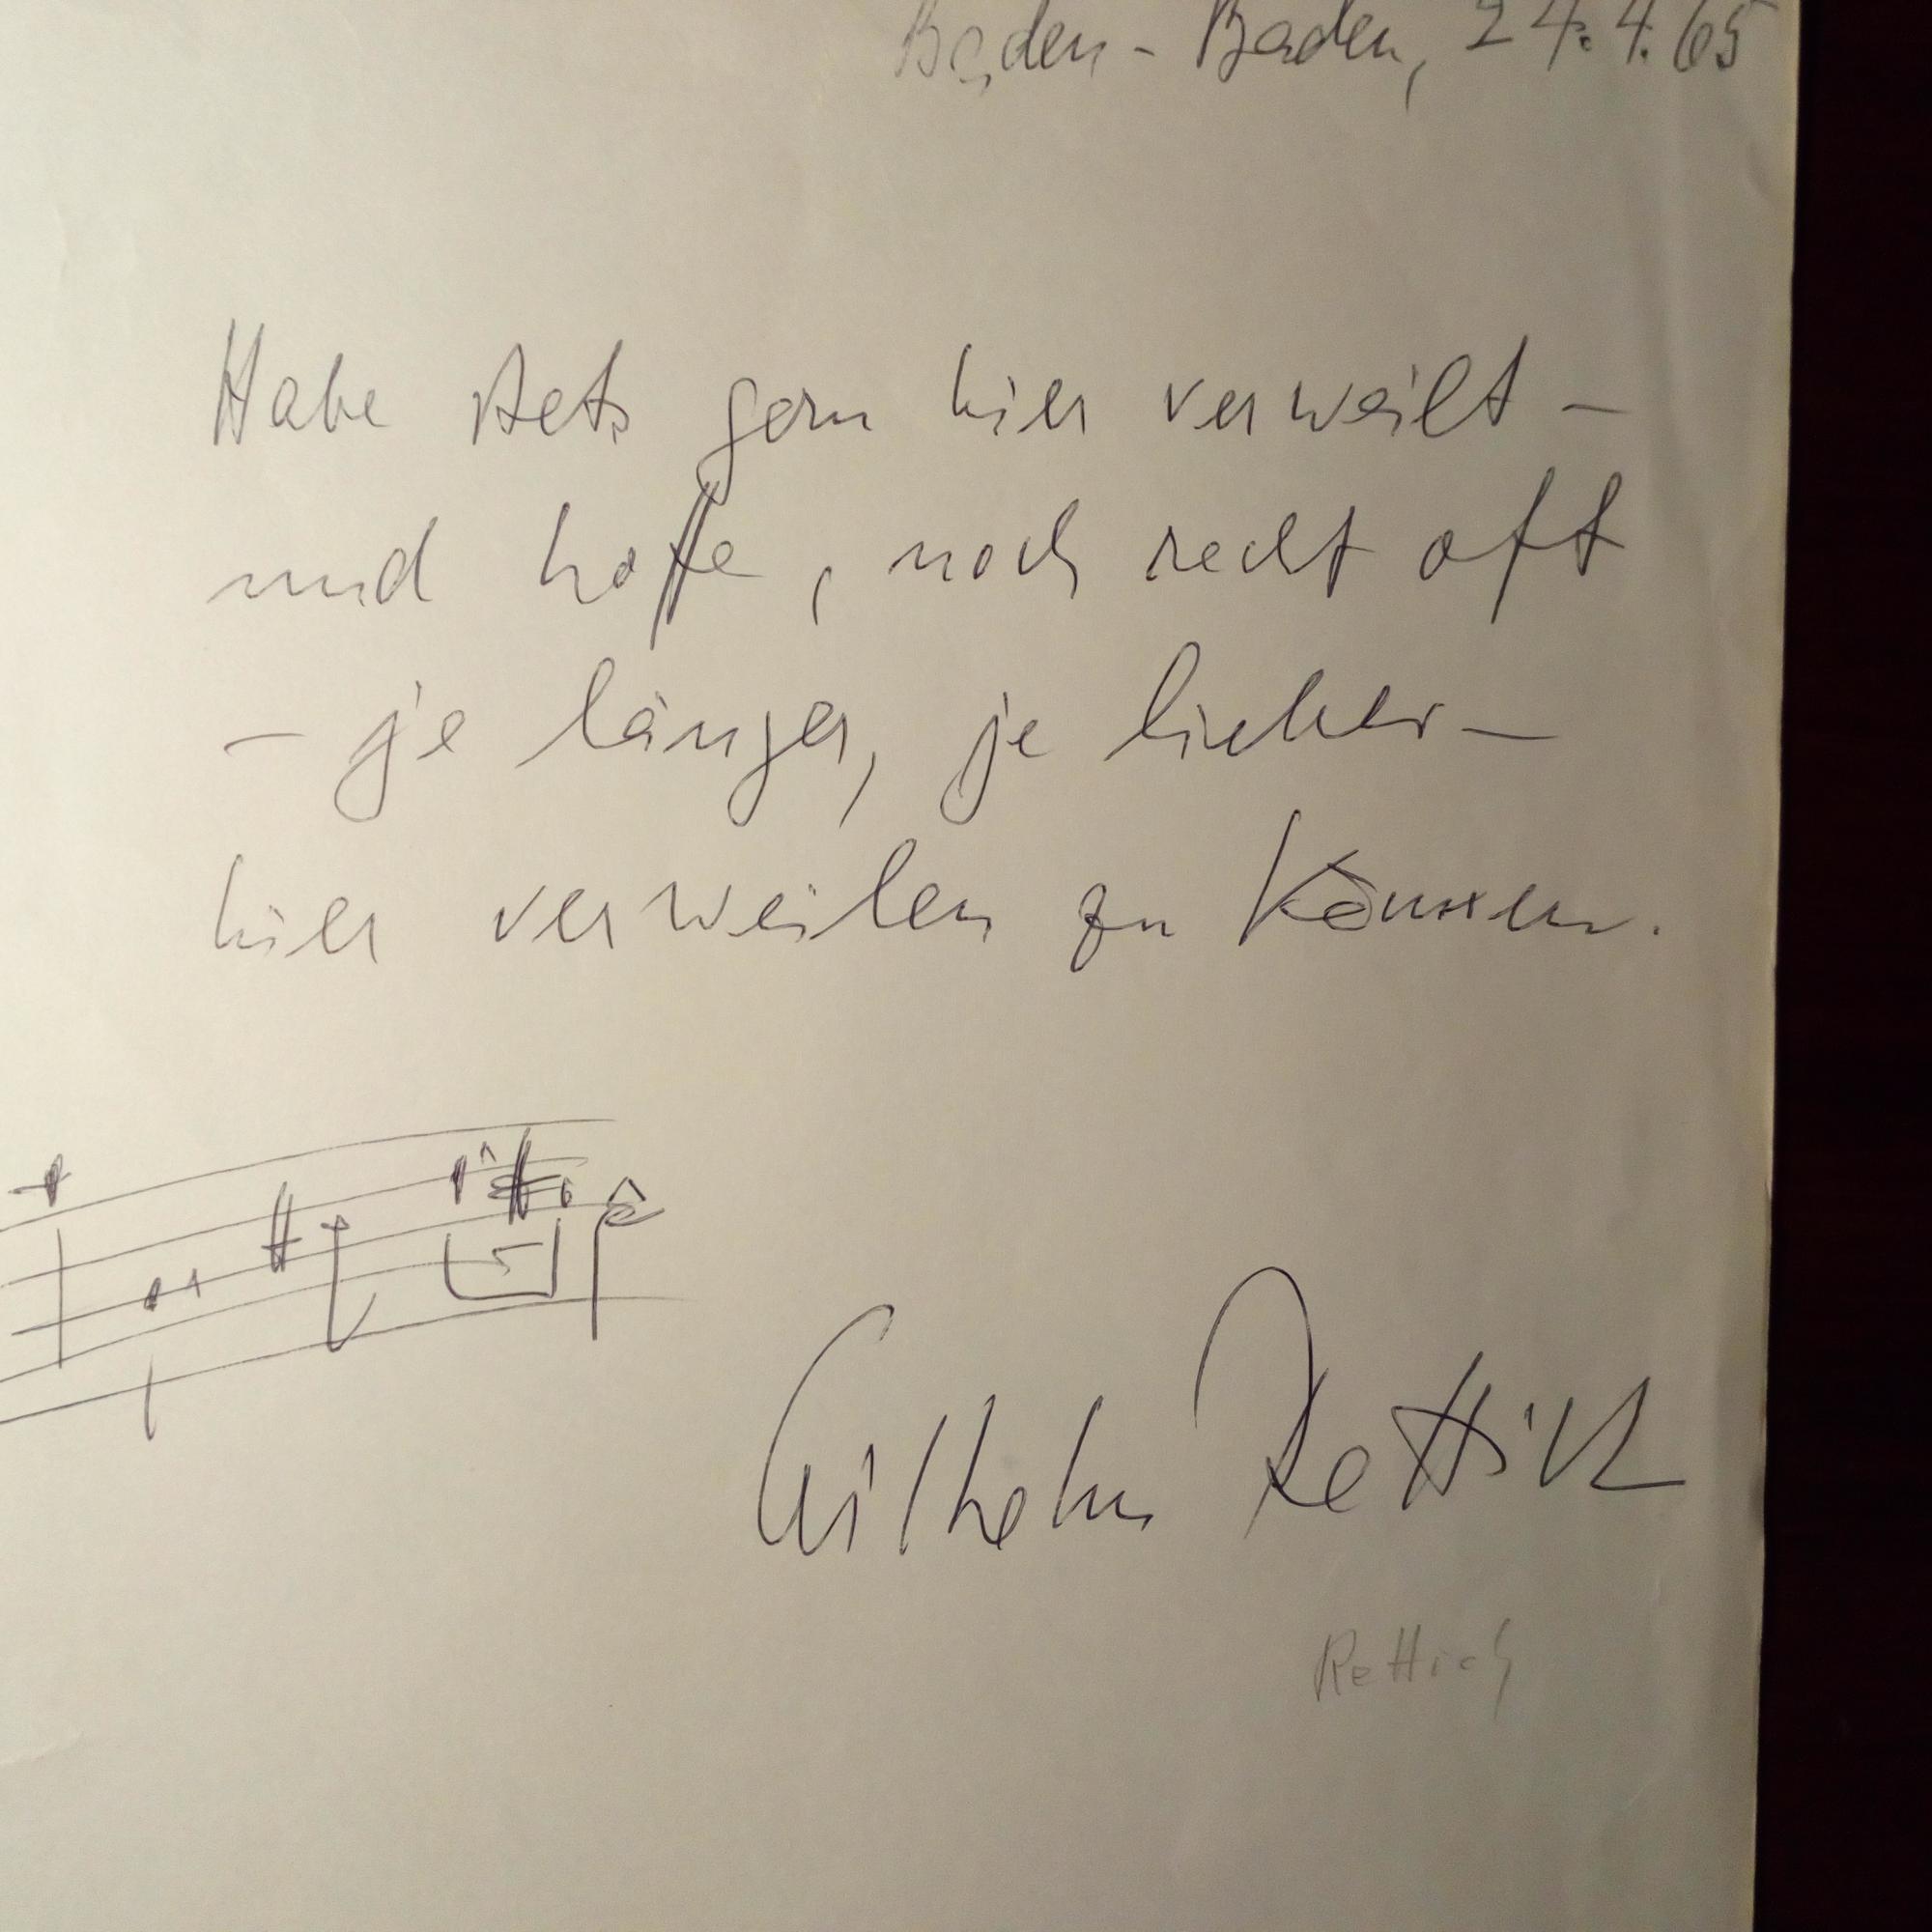 Baden-Baden, 24.4.65
Habe stets gern hier verweilt –
und hoffe, noch recht oft
– je länger, je lieber –
hier verweilen zu können.
Wilhelm Rettich
Rettich